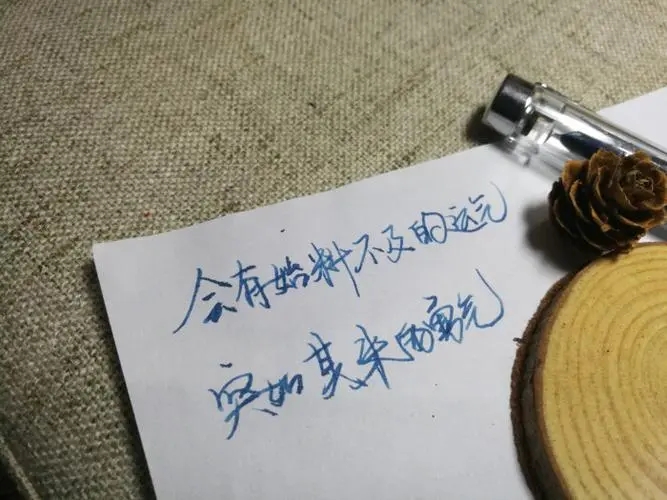 会有始料不及的运气
突如其来的勇气